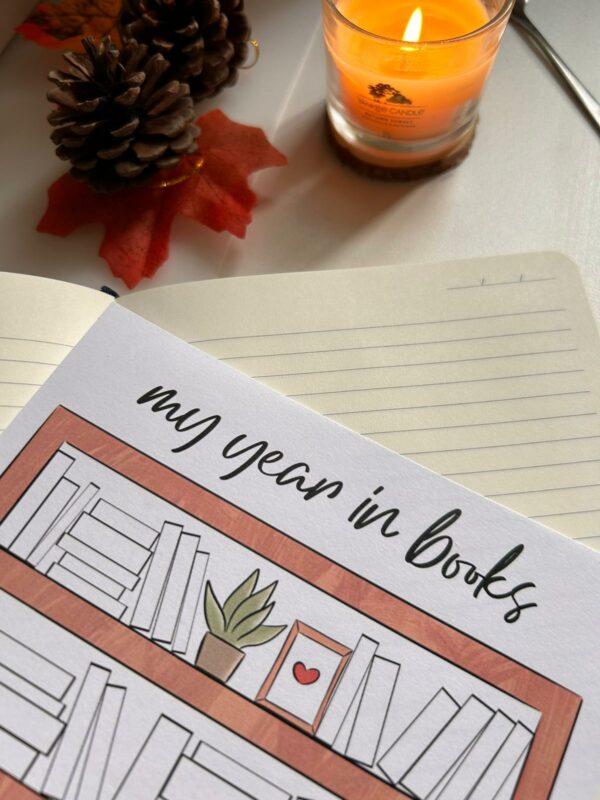 YANKEE CANDLE
my year in books